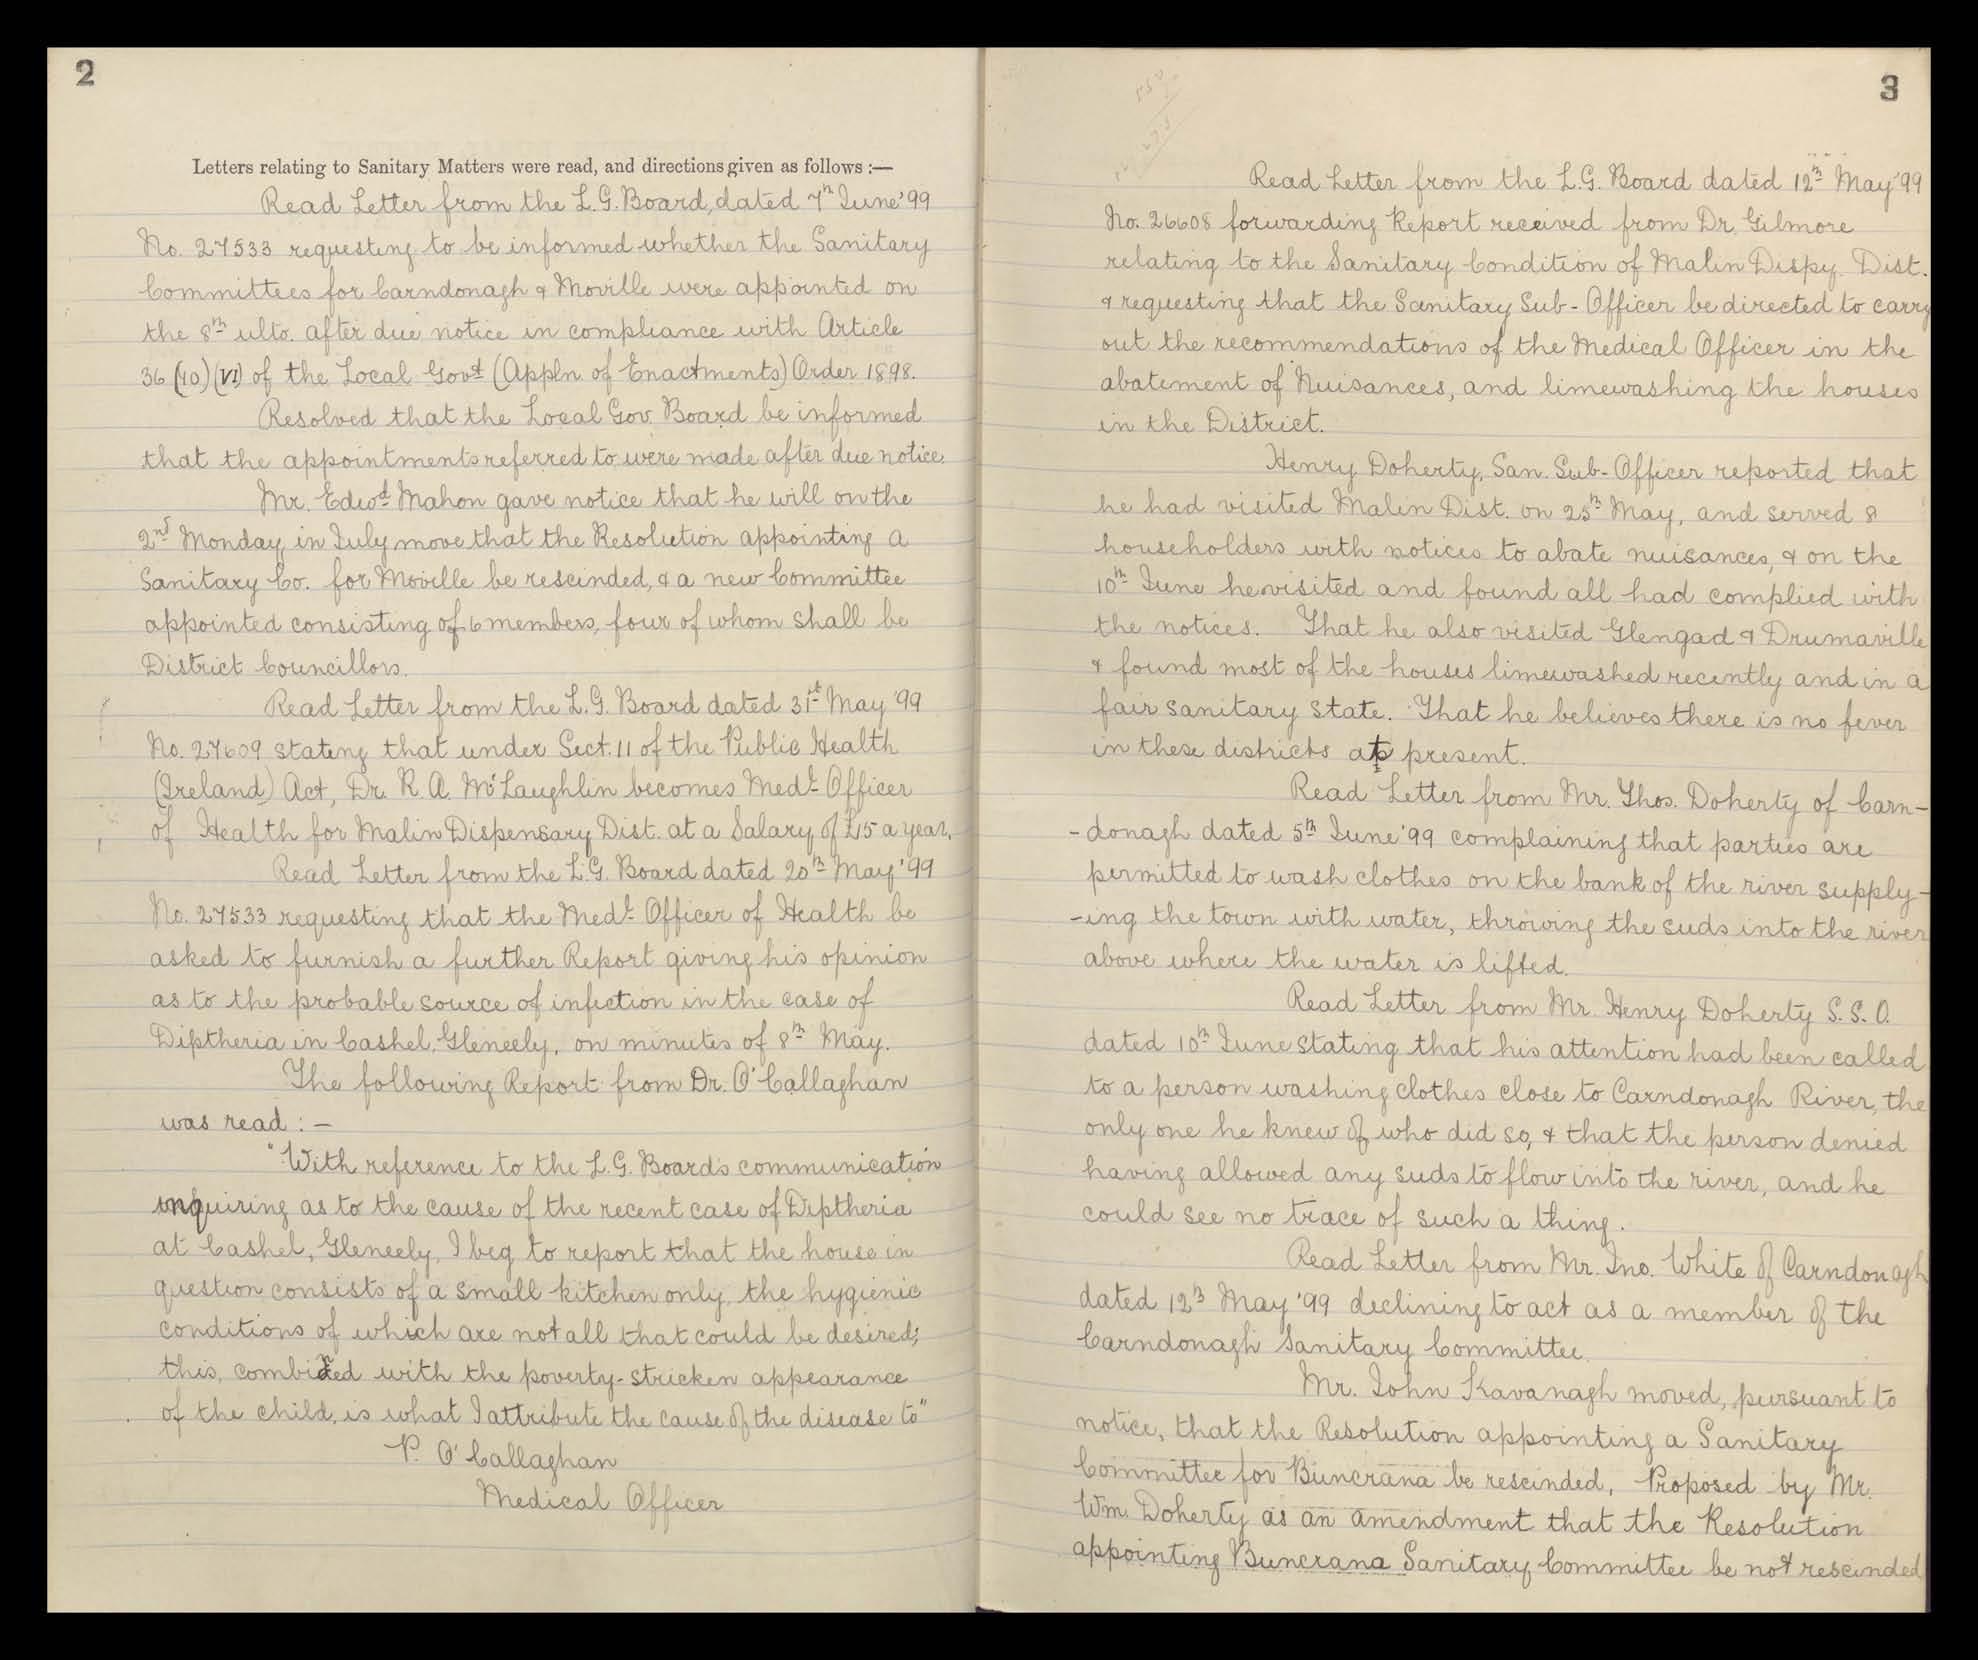 2
Letters relating to Sanitary Matters were read, and directions given as follows :—
Read Letter from the L.G. Board, dated 7th June '99
No. 27533 requesting to be informed whether the Sanitary
Committees for Carndonagh & Moville were appointed on
the 8th ulto. after due notice in compliance with Article
36 (40) (VI) of the Local Govt (Appln of Enactments) Order 1898.
Resolved that the Local Gov. Board be informed
that the appointments referred to were made after due notice.
Mr. Edwd Mahon gave notice that he will on the
2nd Monday in July move that the Resolution appointing a
Sanitary Co. for Moville be rescinded, & a new Committee
appointed consisting of 6 members, four of whom shall be
District Councillors.
Read Letter from the L.G. Board dated 31st May '99
No. 27609 stating that under Sect. 11 of the Public Health
(Ireland) Act, Dr. R. A. McLaughlin becomes Medl Officer
of Health for Malin Dispensary Dist. at a Salary of £15 a year.
Read Letter from the L.G. Board dated 20th May '99
No. 27533 requesting that the Medl Officer of Health be
asked to furnish a further Report giving his opinion
as to the probable source of infection in the case of
Diptheria in Cashel, Gleneely, on minutes of 8th May.
The following Report from Dr. O'Callaghan
was read : —
"With reference to the L.G. Board's communication
inquiring as to the cause of the recent case of Diptheria
at Cashel, Gleneely, I beg to report that the house in
question consists of a small kitchen only, the hygienic
conditions of which are not all that could be desired;
this, combined with the poverty-stricken appearance
of the child, is what I attribute the cause of the disease to"
P. O'Callaghan
Medical Officer
3
Read Letter from the L.G. Board dated 12th May '99
No. 26608 forwarding Report received from Dr. Gilmore
relating to the Sanitary Condition of Malin Dispy. Dist.
& requesting that the Sanitary Sub-Officer be directed to carry
out the recommendations of the Medical Officer in the
abatement of Nuisances, and limewashing the houses
in the District.
Henry Doherty, San. Sub-Officer reported that
he had visited Malin Dist. on 25th May, and served 8
householders with notices to abate nuisances, & on the
10th June he visited and found all had complied with
the notices. That he also visited Glengad & Drumaville
& found most of the houses limewashed recently and in a
fair sanitary state. That he believes there is no fever
in these districts at present.
Read Letter from Mr. Thos. Doherty of Carn-
-donagh dated 5th June '99 complaining that parties are
permitted to wash clothes on the bank of the river supply-
-ing the town with water, throwing the suds into the river
above where the water is lifted.
Read Letter from Mr. Henry Doherty S. S. O.
dated 10th June stating that his attention had been called
to a person washing clothes close to Carndonagh River, the
only one he knew of who did so, & that the person denied
having allowed any suds to flow into the river, and he
could see no trace of such a thing.
Read Letter from Mr. Jno. White of Carndonagh
dated 12th May '99 declining to act as a member of the
Carndonagh Sanitary Committee.
Mr. John Kavanagh moved, pursuant to
notice, that the Resolution appointing a Sanitary
Committee for Buncrana be rescinded, Proposed by Mr.
Wm. Doherty as an amendment that the Resolution
appointing Buncrana Sanitary Committee be not rescinded